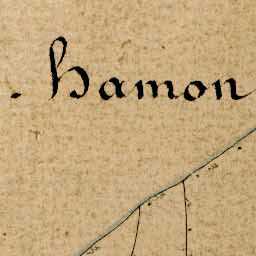 . hamon